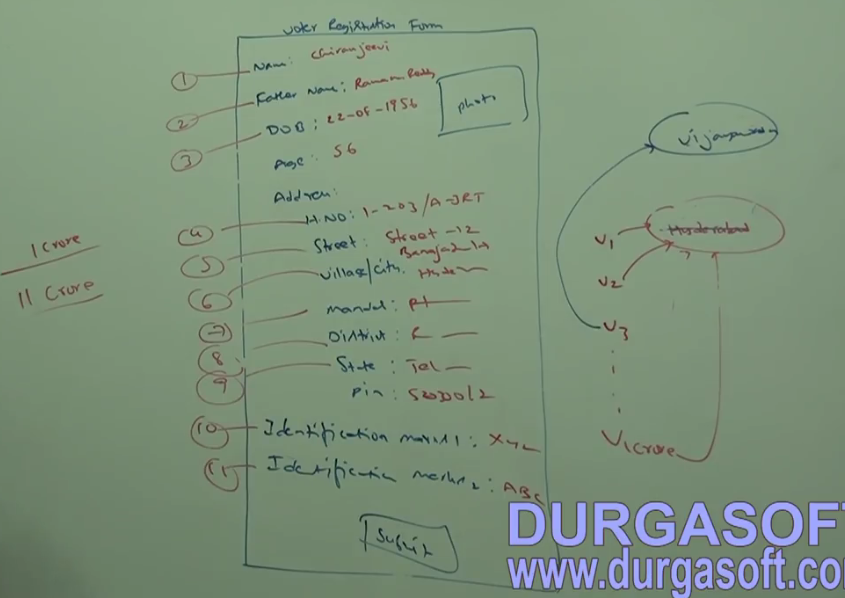 Voter Registration Form
① Name: Chiranjeevi
② Father Name: Ramana Reddy
photo
③ DOB: 22-08-1956
Age: 56
Address:
④ H.NO: 1-203/A-JRT
⑤ Street: Street-12
⑥ Village/City:
⑦ Mandal:
⑧ District: R
⑨ State: Tel
Pin: 500012
⑩ Identification mark1: XYZ
⑪ Identification mark2: ABC
Submit
1 Crore
11 Crore
Vijayawada
Hyderabad
V1
V2
V3
V1crore
DURGASOFT
www.durgasoft.co